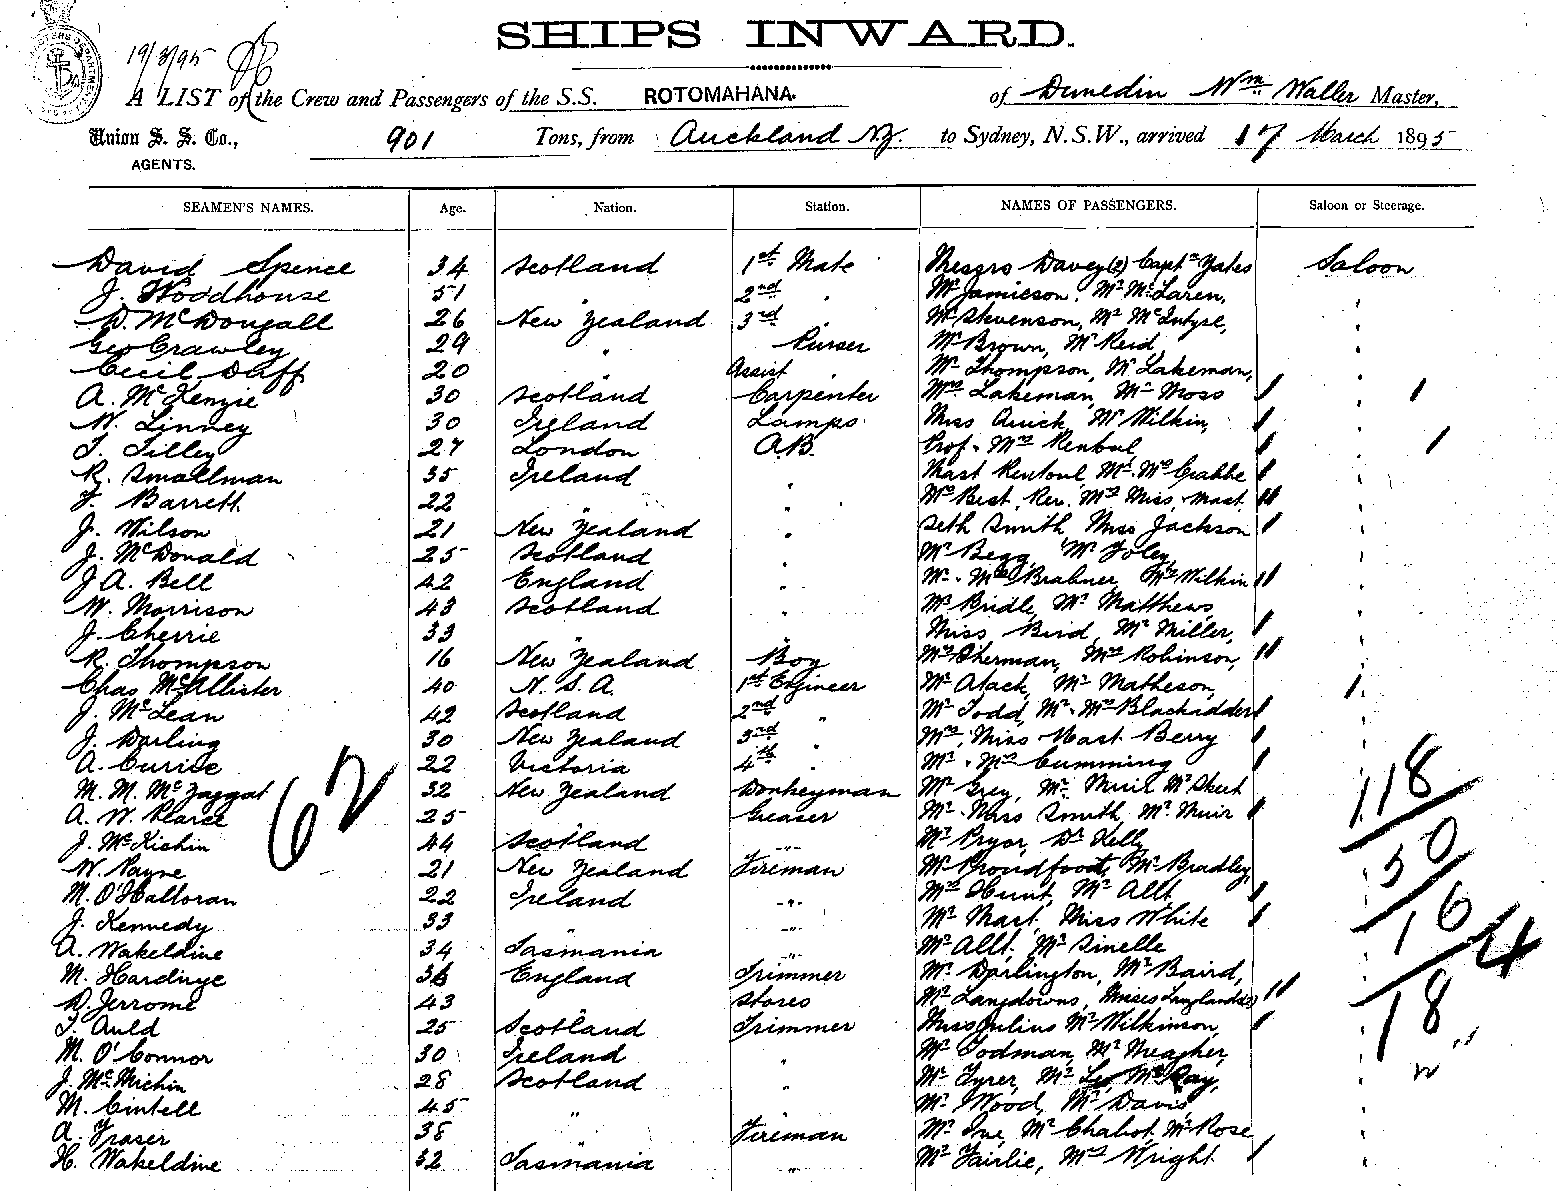 SHIPS INWARD.
19/3/95
A LIST of the Crew and Passengers of the S.S. ROTOMAHANA. of Dunedin Wm Waller Master,
Union S. S. Co., 901 Tons, from Auckland N.Z. to Sydney, N.S.W., arrived 17 March 1895
AGENTS.
SEAMEN'S NAMES. Age. Nation. Station. NAMES OF PASSENGERS. Saloon or Steerage.
David Spence 34 Scotland 1st Mate Messrs Davey (2) Captn Yates Saloon
J. Woodhouse 51 " 2nd " Mr Jamieson, Mr McLaren, "
D. McDougall 26 New Zealand 3rd " Mr Stevenson, Mr McIntyre, "
Geo Crawley 29 " Purser Mr Brown, Mr Reid "
Cecil Duff 20 " Assist " Mr Thompson, Mr Lakeman, "
A. McKenzie 30 Scotland Carpenter Mrs Lakeman, Mr Moss "
W. Linney 30 Ireland Lamps Miss Quick, Mr Wilkin, "
T. Tilley 27 London A.B. Prof. Mrs Rentoul, "
R. Smallman 35 Ireland " Mast Rentoul, Mr. Mrs Crabbe "
F. Barrett 22 " " Mrs Best, Rev. Mrs Miss, Mast. "
J. Wilson 21 New Zealand " Seth Smith Miss Jackson "
J. McDonald 25 Scotland " Mr Begg, Mr Foley "
J A. Bell 42 England " Mr. Mrs Brabner Mrs Wilkin "
W. Morrison 43 Scotland " Mr Bridle, Mr Matthews, "
J. Cherrie 33 " " Miss Bird, Mr Miller, "
R. Thompson 16 New Zealand Boy Mrs Sherman, Mrs Robinson, "
Chas McAllister 40 N.S.A. 1st Engineer Mr Atack, Mr Matheson, "
J. McLean 42 Scotland 2nd " Mr Todd, Mr. Mrs Blackadder "
J. Darling 30 New Zealand 3rd " Mrs, Miss Mast Berry "
A. Currie 22 Victoria 4th " Mr. Mrs Cumming "
M. M. McTaggat 32 New Zealand Donkeyman Mr Grey, Mr Muir Mr Skeet
A. W. Pearce 25 " Greaser Mr. Miss Smith, Mr Muir
J. McKichin 44 Scotland " Mr Pryor, Dr Kelly
W. Payne 21 New Zealand Fireman Mr Proudfoot, Mr Bradley,
M. O'Halloran 22 Ireland " Mrs Hunt, Mr Allt
J. Kennedy 33 " " Mr Mast, Miss White
A. Wakeldine 34 Tasmania " Mr Allt. Mr Sinelle
M. Hardinge 36 England Trimmer Mr Darlington, Mr Baird,
D. Jerrome 43 " Stores Mr Langdowns, Misses Langlands (2)
T. Auld 25 Scotland Trimmer Miss Julius Mr Wilkinson,
M. O'Connor 30 Ireland " Mr Todman, Mr Meagher,
J. McMichin 28 Scotland " Mr Tyrer, Mr Mr Ray,
M. Cintell 45 " Mr Wood, Mr Davis
A. Fraser 38 Fireman Mr Ive, Mr Chabot, Mr Rose
H. Wakeldine 32 Tasmania " Mr Fairlie, Mrs Wright
62
118
50
16
4
18